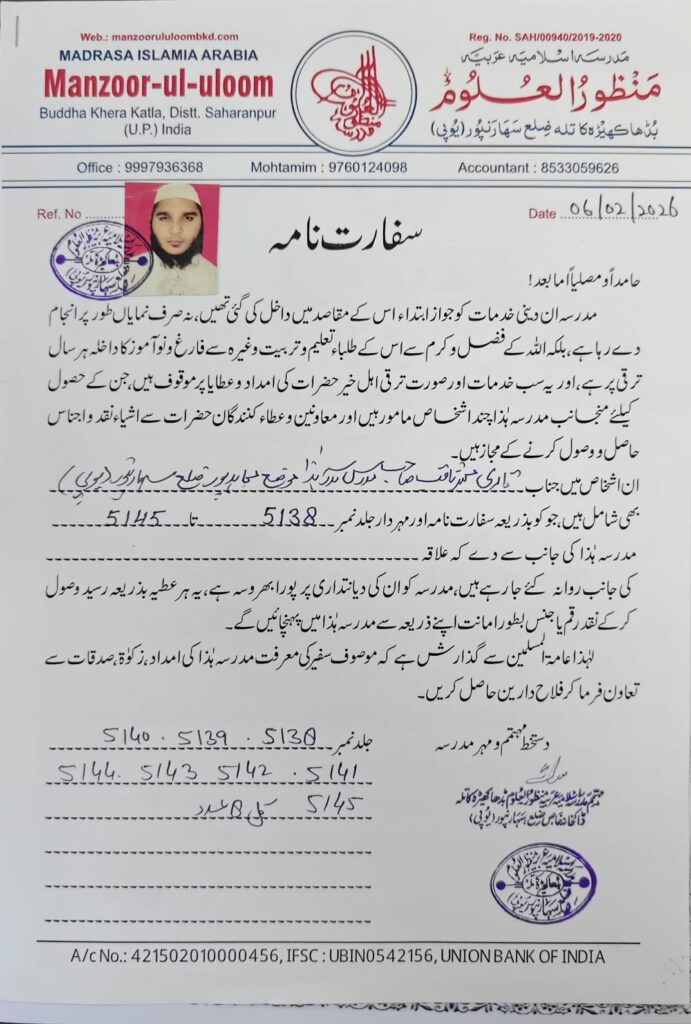 Web.: manzoorululoombkd.com
Reg. No. SAH/00940/2019-2020
MADRASA ISLAMIA ARABIA
مدرسہ اسلامیہ عربیہ
Manzoor-ul-uloom
مَنظورُ العلُوم
Buddha Khera Katla, Distt. Saharanpur
(U.P.) India
بُڈھاکھیڑہ کاتلہ ضلع سَہَارَنپُور (یُوپی)
Office : 9997936368
Mohtamim : 9760124098
Accountant : 8533059626
Ref. No
Date 06/02/2026
سفارت نامہ
حامداً ومصلیاً اما بعد!
مدرسہ ان دینی خدمات کو جو از ابتداء اس کے مقاصد میں داخل کی گئی تھیں، نہ صرف نمایاں طور پر انجام
دے رہا ہے، بلکہ اللہ کے فضل وکرم سے اس کے طلباء تعلیم وتربیت وغیرہ سے فارغ ونوآموز کا داخلہ ہر سال
ترقی پر ہے، اور یہ سب خدمات اور صورت ترقی اہل خیر حضرات کی امداد وعطایا پر موقوف ہیں، جن کے حصول
کیلئے منجانب مدرسہ ہٰذا چند اشخاص مامور ہیں اور معاونین وعطاء کنندگان حضرات سے اشیاء نقد واجناس
حاصل و وصول کرنے کے مجاز ہیں۔
ان اشخاص میں جناب قاری صاحب مدرس مدرسہ ہٰذا موضع ضلع سہارنپور (یوپی)
بھی شامل ہیں، جو کو بذریعہ سفارت نامہ اور مہردار جلد نمبر 5138 تا 5145
مدرسہ ہٰذا کی جانب سے دے کہ علاقہ
کی جانب روانہ کئے جا رہے ہیں، مدرسہ کو ان کی دیانتداری پر پورا بھروسہ ہے، یہ ہر عطیہ بذریعہ رسید وصول
کر کے نقد رقم یا جنس بطور امانت اپنے ذریعہ سے مدرسہ ہٰذا میں پہنچائیں گے۔
لہٰذا عامۃ المسلمین سے گذارش ہے کہ موصوف سفیر کی معرفت مدرسہ ہٰذا کی امداد، زکوٰۃ، صدقات سے
تعاون فرما کر فلاح دارین حاصل کریں۔
دستخط مہتمم ومہر مدرسہ
جلد نمبر 5138 . 5139 . 5140
5141 . 5142 5143 5144
5145 کل 8 عدد
مہتمم مدرسہ اسلامیہ عربیہ منظور العلوم بڈھاکھیڑہ کاتلہ
ڈاکخانہ خاص ضلع سہارنپور (یوپی)
A/c No.: 421502010000456, IFSC : UBIN0542156, UNION BANK OF INDIA